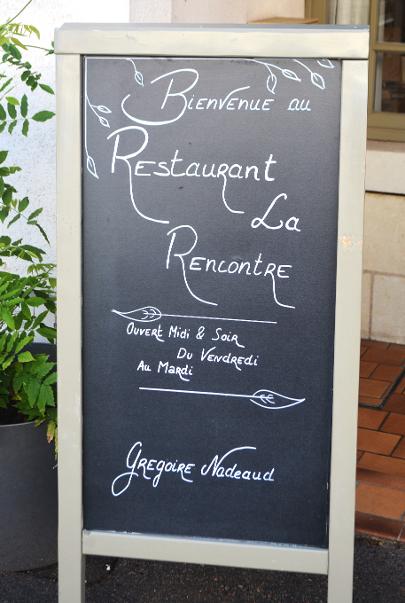 Bienvenue au
Restaurant
La
Rencontre
Ouvert Midi & Soir
Du Vendredi
Au Mardi
Gregoire Nadeaud